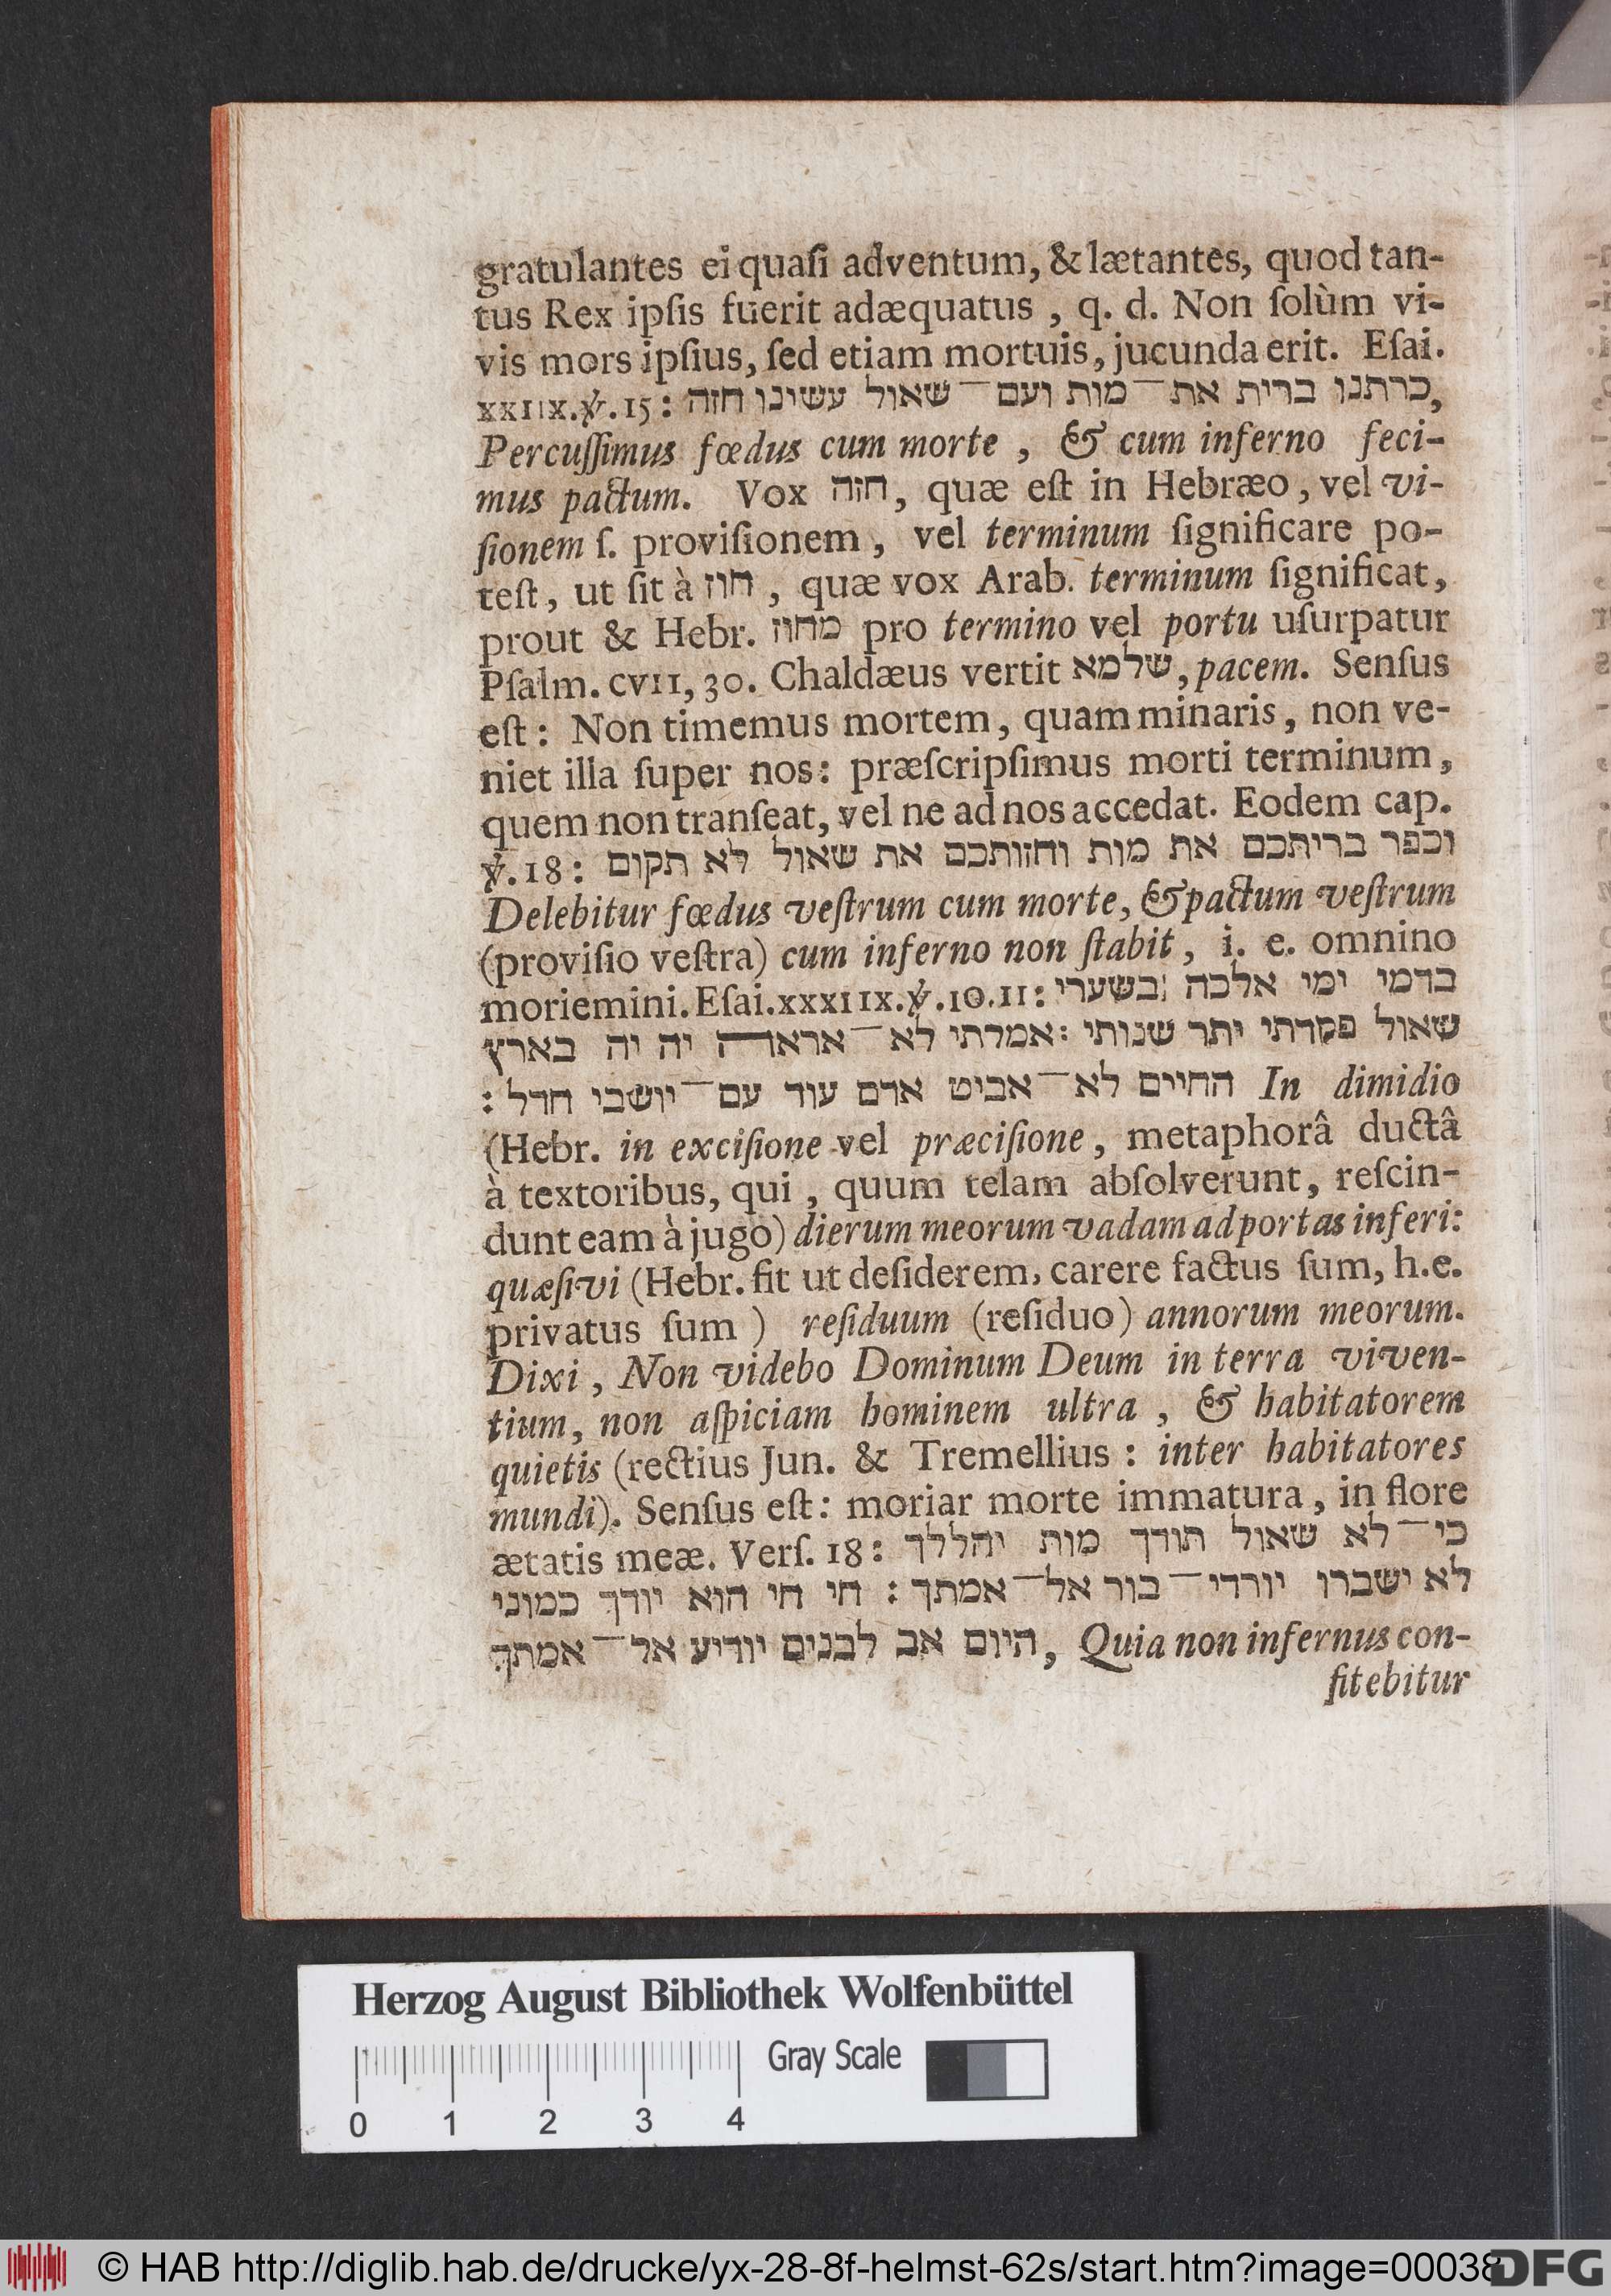 gratulantes ei quaſi adventum, & lætantes, quod tan-
tus Rex ipſis fuerit adæquatus , q. d. Non ſolùm vi-
vis mors ipſius, ſed etiam mortuis, jucunda erit. Eſai.
xxıııx.℣.15: כרתנו ברית את־מות ועם־שאול עשינו חזה,
Percuſſimus fœdus cum morte , & cum inferno feci-
mus pactum. Vox חזה, quæ eſt in Hebræo, vel vi-
ſionem ſ. proviſionem, vel terminum ſignificare po-
teſt, ut ſit à חוז , quæ vox Arab. terminum ſignificat,
prout & Hebr. מחוז pro termino vel portu uſurpatur
Pſalm. cvıı, 30. Chaldæus vertit שלמא, pacem. Senſus
eſt: Non timemus mortem, quam minaris, non ve-
niet illa ſuper nos: præſcripſimus morti terminum,
quem non tranſeat, vel ne ad nos accedat. Eodem cap.
℣.18: וכפר בריתכם את מות וחזותכם את שאול לא תקום
Delebitur fœdus veſtrum cum morte, & pactum veſtrum
(proviſio veſtra) cum inferno non ſtabit, i. e. omnino
moriemini. Eſai.xxxıııx.℣.10.11: בדמי ימי אלכה בשערי
שאול פקדתי יתר שנותי: אמרתי לא־אראה יה יה בארץ
החיים לא־אביט אדם עוד עם־יושבי חדל: In dimidio
(Hebr. in exciſione vel præciſione, metaphorâ ductâ
à textoribus, qui , quum telam abſolverunt, reſcin-
dunt eam à jugo) dierum meorum vadam ad portas inferi:
quæſivi (Hebr. fit ut deſiderem, carere factus ſum, h.e.
privatus ſum ) reſiduum (reſiduo) annorum meorum.
Dixi, Non videbo Dominum Deum in terra viven-
tium, non aſpiciam hominem ultra , & habitatorem
quietis (rectius Jun. & Tremellius : inter habitatores
mundi). Senſus eſt: moriar morte immatura, in flore
ætatis meæ. Verſ. 18: כי־לא שאול תודך מות יהללך
לא ישברו יורדי־בור אל־אמתך: חי חי הוא יודך כמוני
היום אב לבנים יודיע אל־אמתך, Quia non infernus con-
fitebitur
Herzog August Bibliothek Wolfenbüttel
Gray Scale
0 1 2 3 4
© HAB http://diglib.hab.de/drucke/yx-28-8f-helmst-62s/start.htm?image=00038
DFG